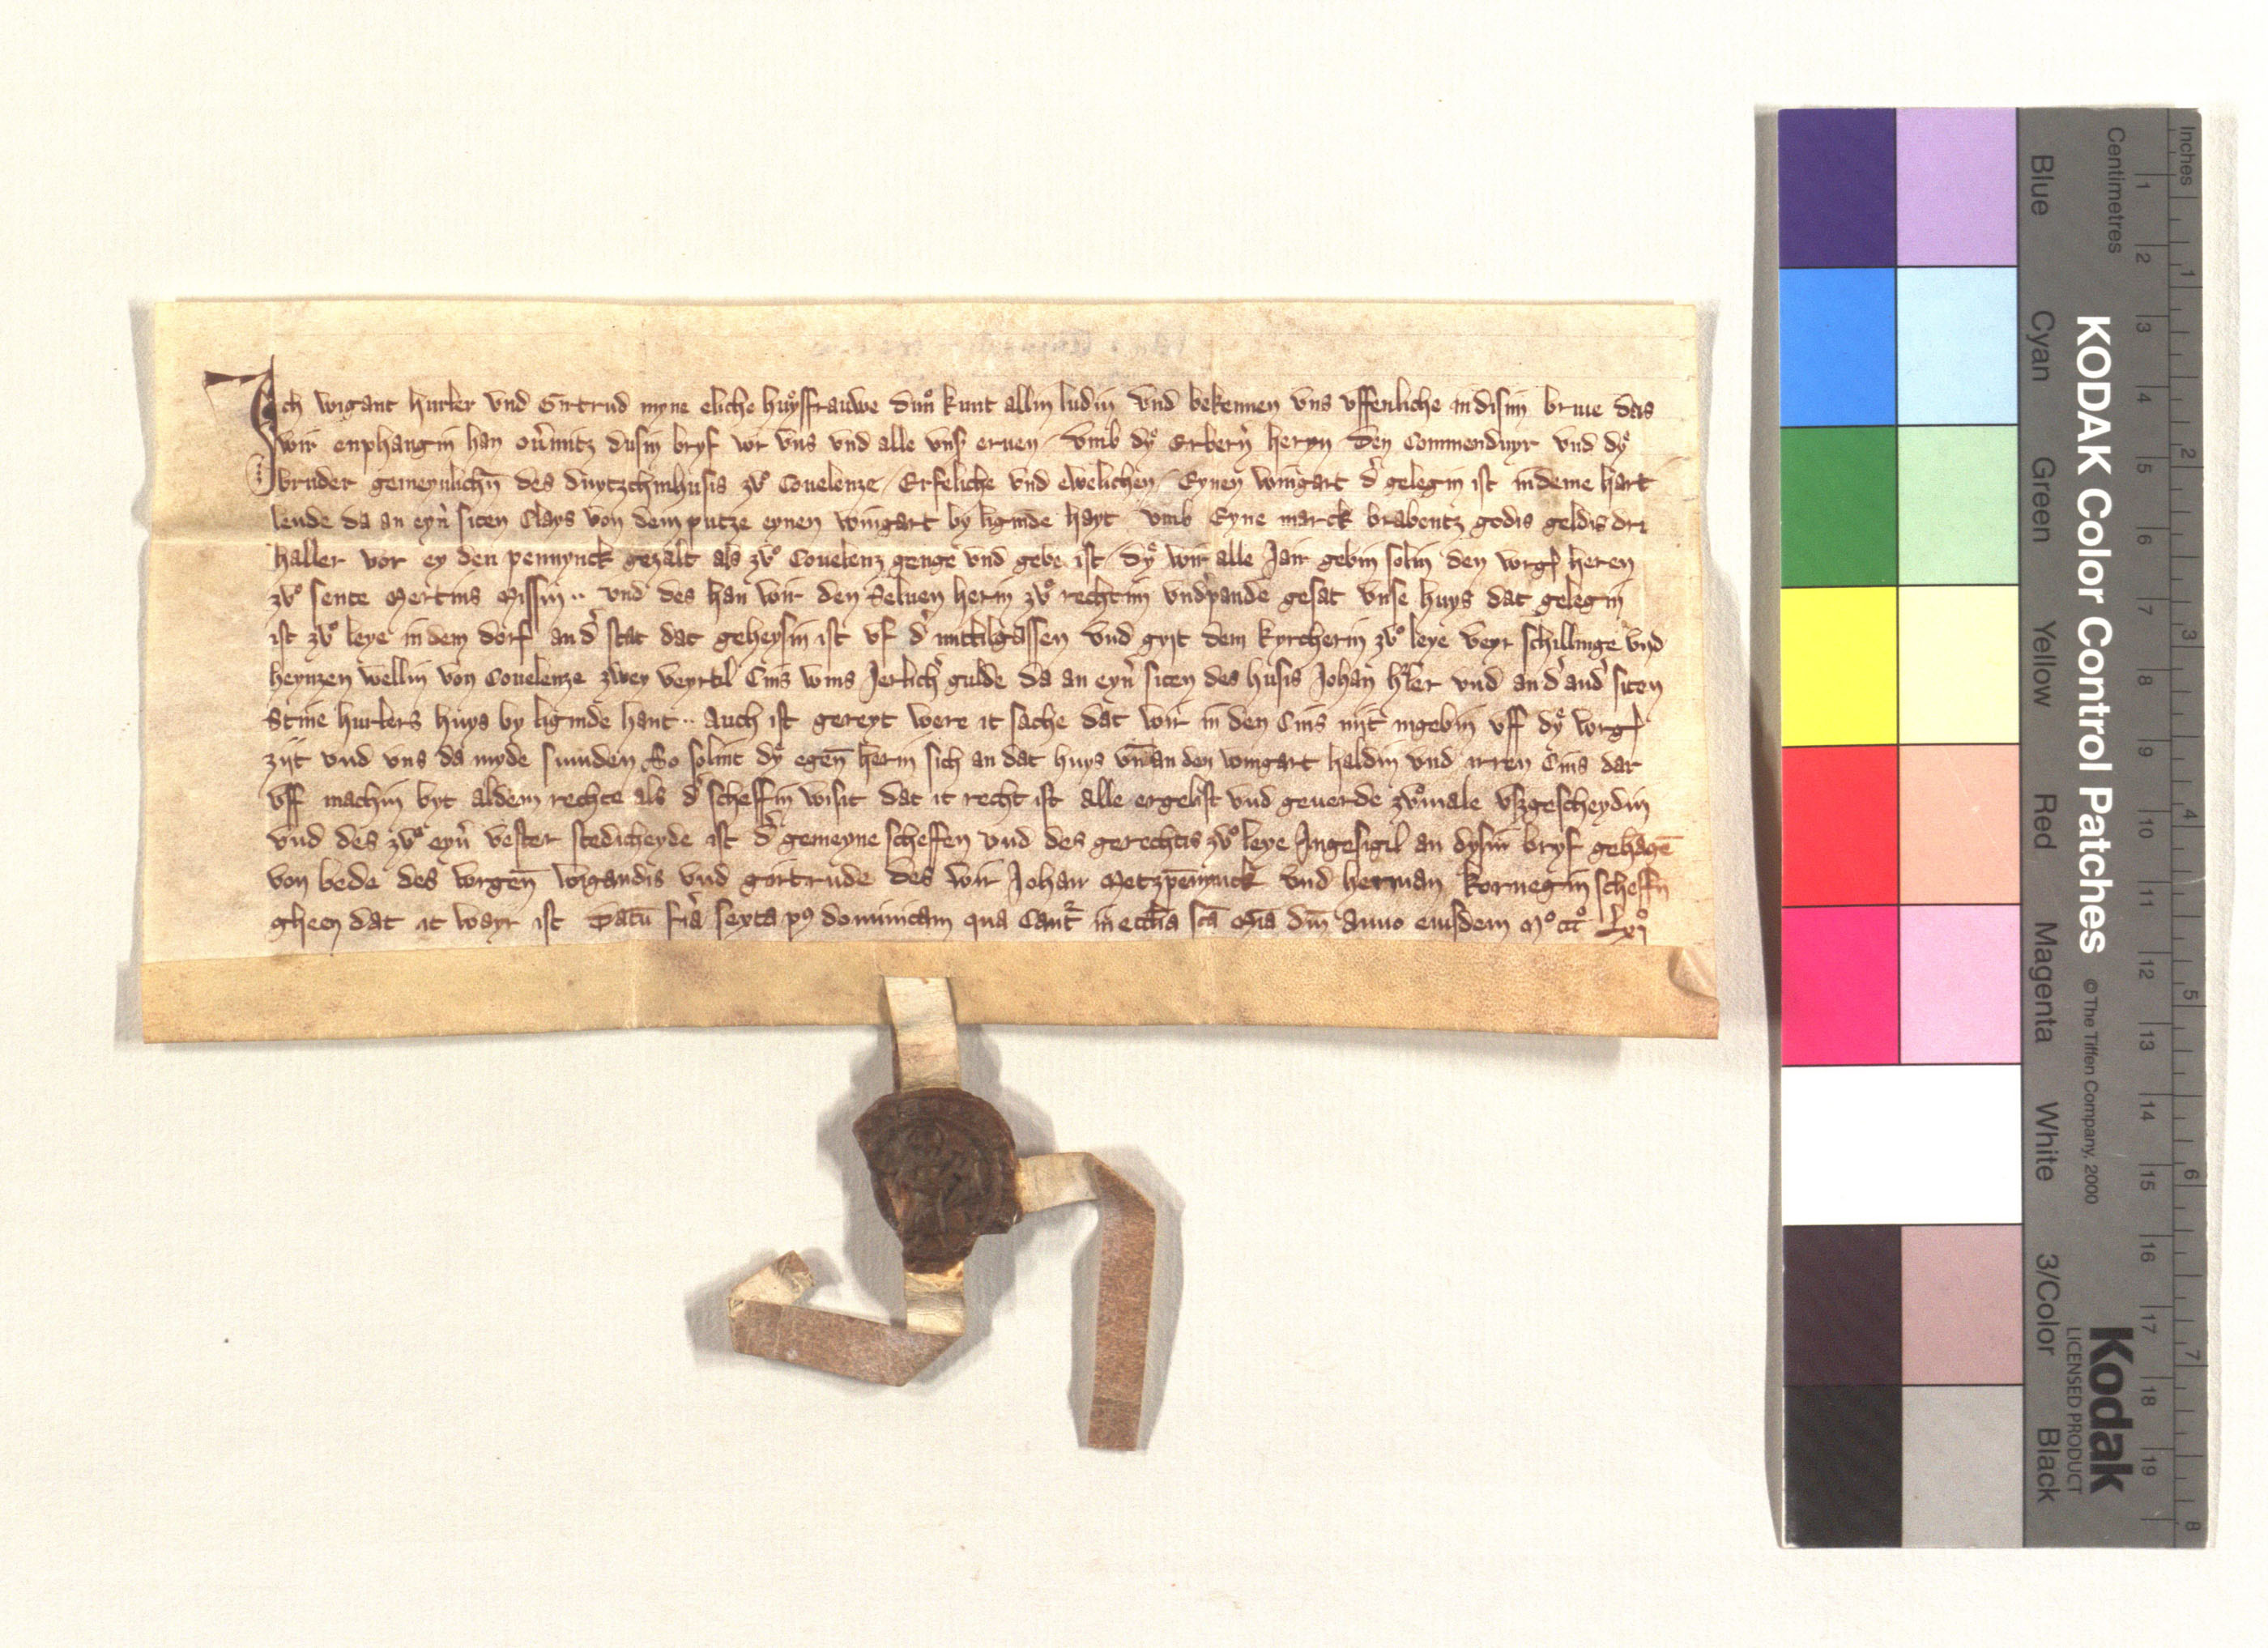 Ich wigant hurler vnd Girtrud myne eliche huͦsffrauwe duͦn kunt allin ludin vnd bekennen vns vffenliche in disim briue das
wir enphangin han ou̓mitz dusin bryf vor vns vnd alle vnß eruen / vmb dyͤ Erberṅ heryn / den Commenduyr vnd dyͤ
bruder gemeynlichn̄ des duytzchinhusis zvͦ Couelenze / Erfeliche vnd ewelichen / Eynen wingart d̓ gelegin ist in deme hart
lende da an eyn̓ siten Clays von dem putze eynen wingart by liginde hayt vmb Eyne marck brabentz godis geldis dri
haller vor ey den pennynck gezalt als zvͦ Couelenz genge vnd gebe ist / dyͤ wir alle Jair gebin solin den vorgꝭ heren
zvͦ sente Mertins Missin ·· vnd des han wir den seluen herin zvͦ rechtin vndpande gesat vnse huys dat gelegin
ist zvͦ leye in dem dorf an d̓ stat dat geheysin ist vf d̓ mittilgassen vnd gyt dem kyrcherin zvͦ leye veyr schillinge vnd
heynzen wellin von Couelenze zwey veyrtil Cins wins Jerlich̓ gulde da an eyn̓ siten des husis Johan hꝛler vnd an d̓ and̓ siten
Stine hurlers huys by liginde hant ·· Auch ist gereyt were it sache dat wir in den Cins nijt ingebin vff dyͤ vorgꝭ
zijt vnd vns da myde sumden So solint dyͤ egen̄ herin sich an dat huys vn̄ an den wingart haldin vnd irren Cins dar
vff machin byt aldem rechte als d̓ scheffin wisit dat it recht ist alle ergelist vnd geuerde zvͦmale vszgescheydin
vnd des zvͦ eyn̓ vester stedicheyde ist d̓ gemeyne scheffen vnd des gerechtis zvͦ leye Ingesigil an dysin bryf gehāgē
von bede des vorgen̄ wigandis vnd girtrude des wir Johan Metzpennynck vnd herman kornegin scheffn̄
gheen dat it wayr ist Datū fr̓ia sexta pꝰ dominicam qua Cantꝛ in eccl̄ia sc̄a Mīa dn̄i anno eiusdem Mͦ ccͦcͦ Lxjͦ
KODAK Color Control Patches
© The Tiffen Company, 2000
Kodak
LICENSED PRODUCT
Blue Cyan Green Yellow Red Magenta White 3/Color Black
Centimetres 1 2 3 4 5 6 7 8 9 10 11 12 13 14 15 16 17 18 19
Inches 1 2 3 4 5 6 7 8